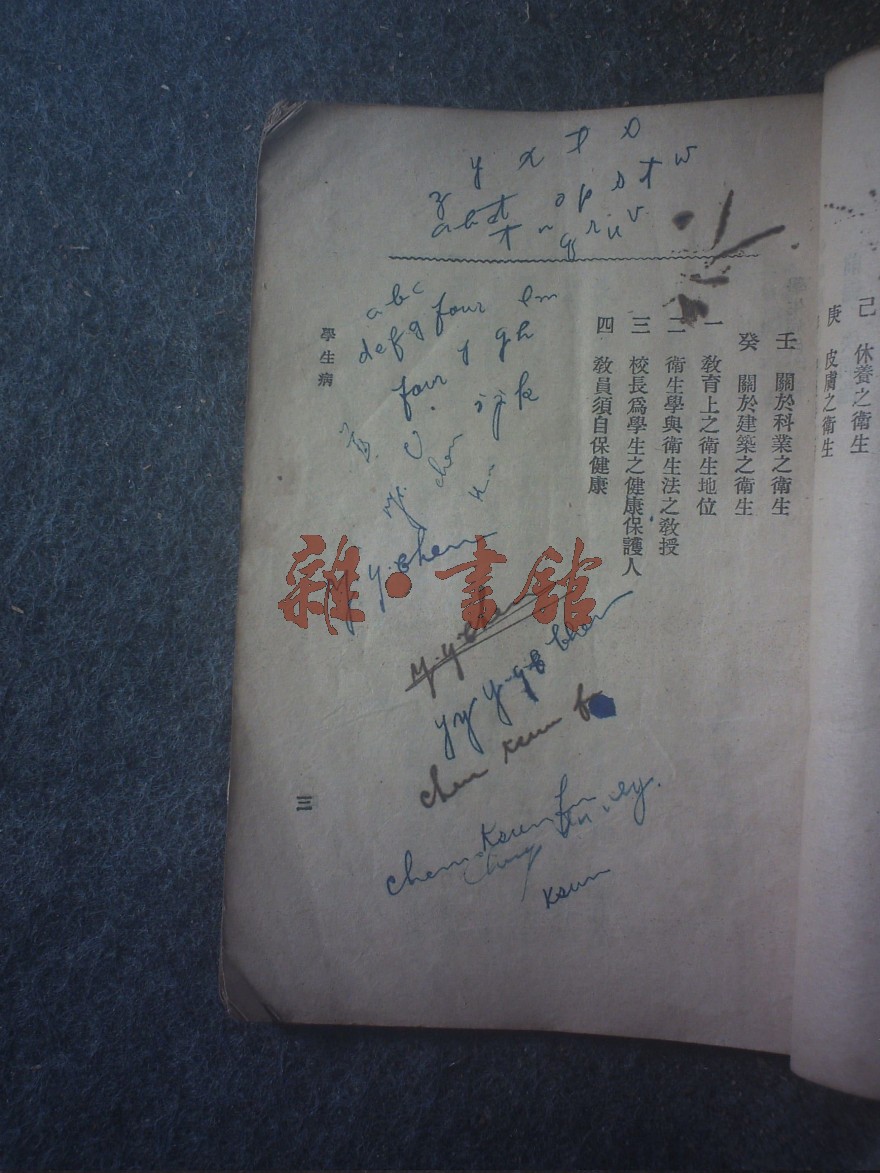 己　休養之衛生
庚　皮膚之衛生
壬　關於科業之衛生
癸　關於建築之衛生
一　教育上之衛生地位
二　衛生學與衛生法之教授
三　校長爲學生之健康保護人
四　教員須自保健康
學生病
三
y x t s
z o p s t w
q r u v
a b c
d e f g four l m
four y g h
i j k
y. chen
y. y. chen
chen ksun
chen ksun fu
ksun
雜·書館